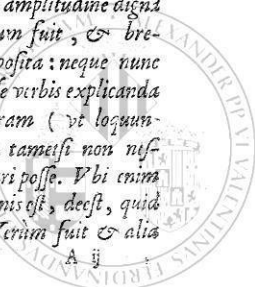 amplitudine dignā
um fuit, & bre-
posita: neque nunc
e verbis explicanda
ram ( vt loquun-
tametsi non nes-
ri posse. Vbi enim
nis est, deest, quid
erùm fuit & alia
A ij
ALEXANDER PP VI VALENTINVS